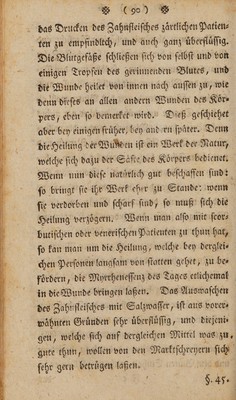 ( 90 )
das Drucken des Zahnfleisches zärtlichen Patien-
ten zu empfindlich, und auch ganz überflüssig.
Die Blutgefäße schließen sich von selbst und von
einigen Tropfen des gerinnenden Blutes, und
die Wunde heilet von innen nach aussen zu, wie
denn dieses an allen andern Wunden des Kör-
pers, eben so bemerket wird. Dieß geschiehet
aber bey einigen früher, bey andern später. Denn
die Heilung der Wunden ist ein Werk der Natur,
welche sich dazu der Säfte des Körpers bedienet.
Wenn nun diese natürlich gut beschaffen sind:
so bringt sie ihr Werk eher zu Stande: wenn
sie verdorben und scharf sind, so muß sich die
Heilung verzögern. Wenn man also mit scor-
butischen oder venerischen Patienten zu thun hat,
so kan man um die Heilung, welche bey derglei-
chen Personen langsam von statten gehet, zu be-
fördern, die Myrrhenessenz des Tages etlichemal
in die Wunde bringen laßen. Das Auswaschen
des Zahnfleisches mit Salzwasser, ist aus vorer-
wähnten Gründen sehr überflüssig, und diejeni-
gen, welche sich auf dergleichen Mittel was zu
gute thun, wollen von den Marktschreyern sich
sehr gern betrügen laßen.
§. 45.